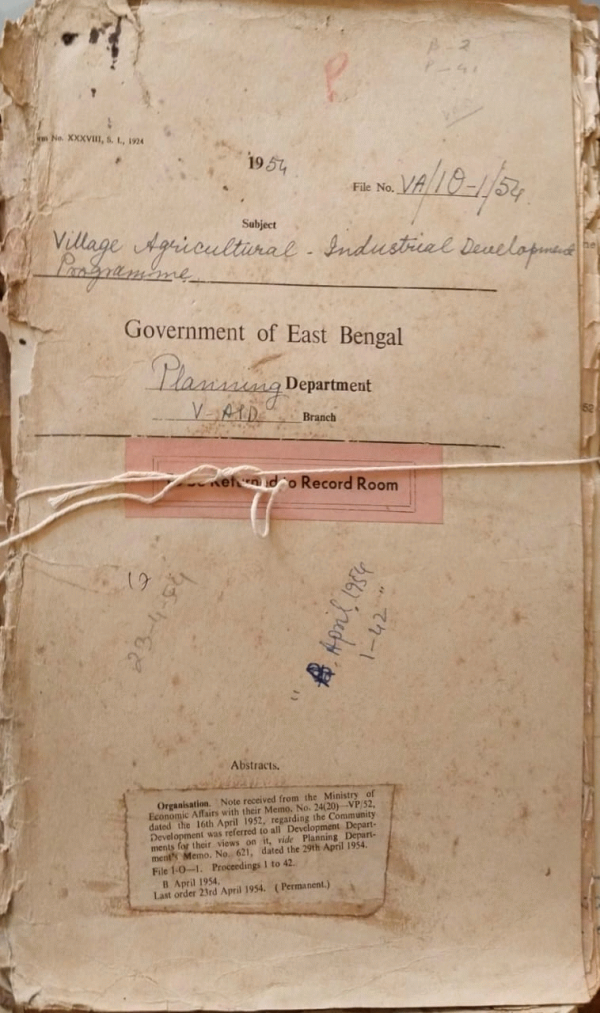 P
B-2
P-41
No. XXXVIII, S. I., 1924
1954
File No. VA/1O-1/54
Subject
Village Agricultural - Industrial Development
Programme
Government of East Bengal
Planning Department
V-AID Branch
Returned to Record Room
23-4-54
" B. April, 1954
1-42 "
Abstracts.
Organisation. Note received from the Ministry of
Economic Affairs with their Memo. No. 24(20)—VP/52,
dated the 16th April 1952, regarding the Community
Development was referred to all Development Depart-
ments for their views on it, vide Planning Depart-
ment's Memo. No. 621, dated the 29th April 1954.
File 1-O—1. Proceedings 1 to 42.
B April 1954.
Last order 23rd April 1954. (Permanent.)